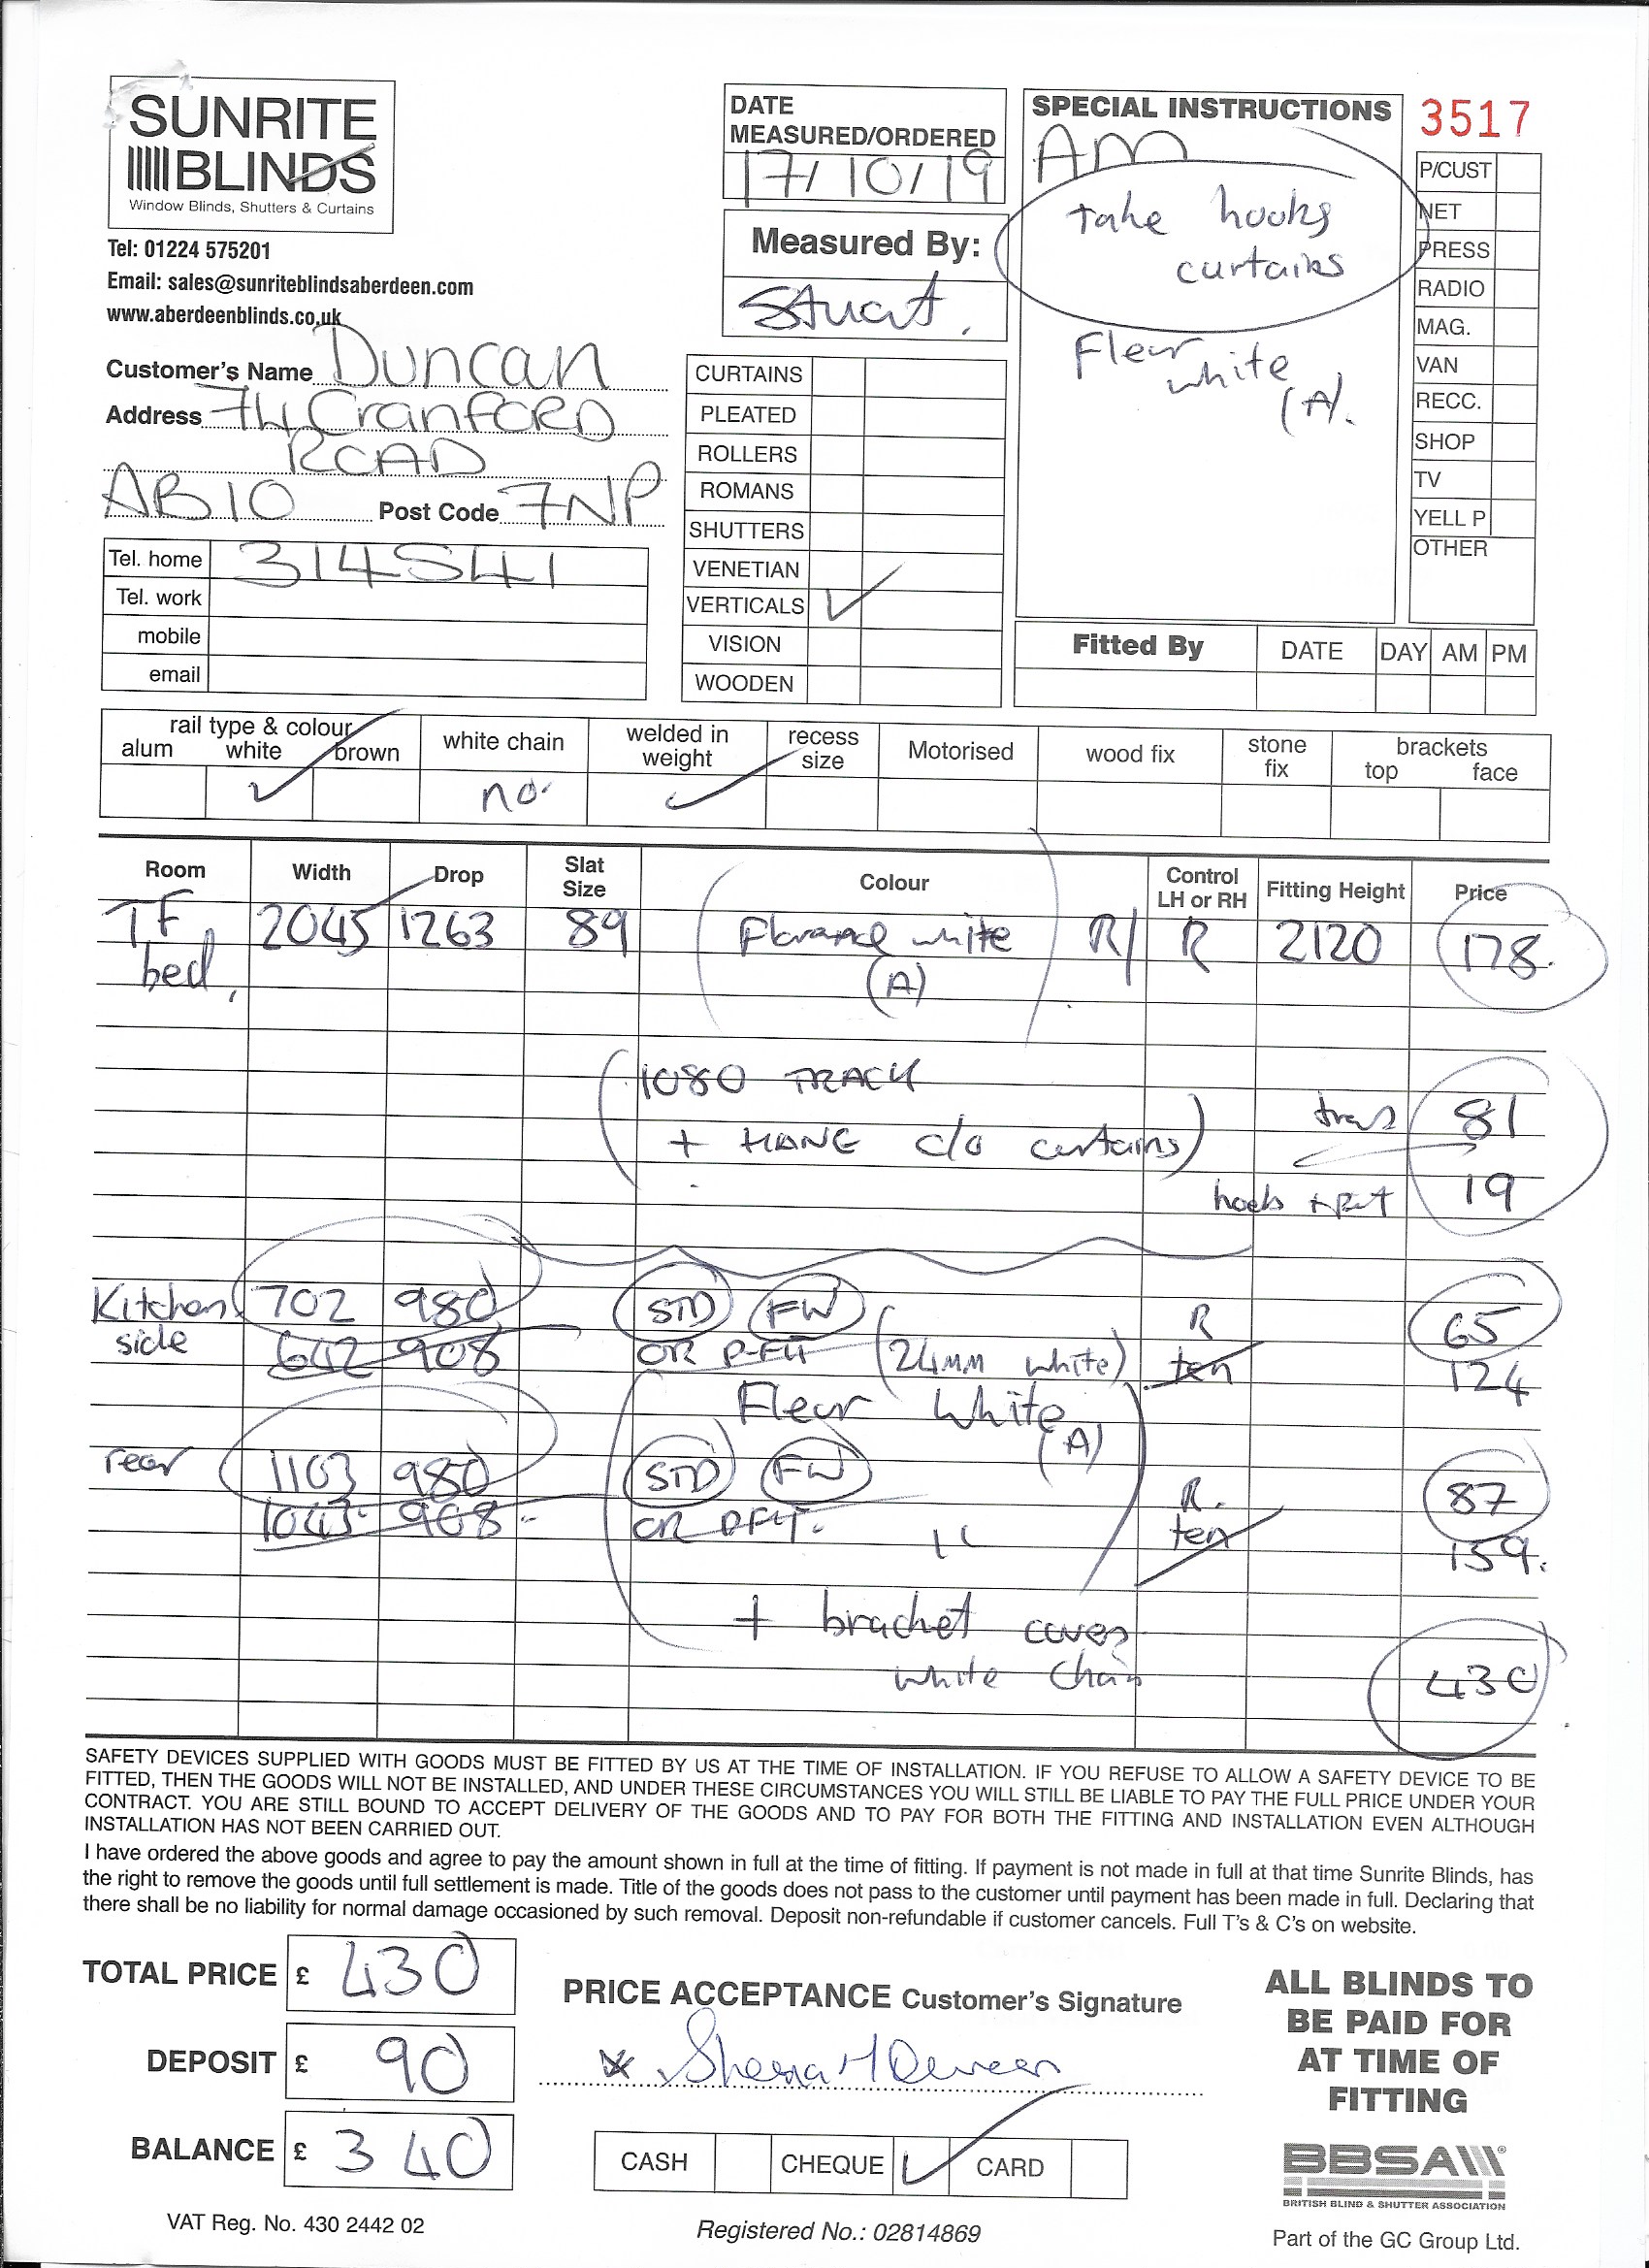 SUNRITE
BLINDS
Window Blinds, Shutters & Curtains
Tel: 01224 575201
Email: sales@sunriteblindsaberdeen.com
www.aberdeenblinds.co.uk
Customer's Name Duncan
Address 74 CranfORD
ROAD
AB10 Post Code 7NP
Tel. home 314541
Tel. work
mobile
email
DATE
MEASURED/ORDERED
17/10/19
Measured By:
Stuart.
CURTAINS
PLEATED
ROLLERS
ROMANS
SHUTTERS
VENETIAN
VERTICALS ✓
VISION
WOODEN
SPECIAL INSTRUCTIONS
AM
take hooks
curtains
Fleur
white
(A).
3517
P/CUST
NET
PRESS
RADIO
MAG.
VAN
RECC.
SHOP
TV
YELL P
OTHER
Fitted By DATE DAY AM PM
rail type & colour
alum white brown
✓
white chain
no.
welded in
weight
✓
recess
size
Motorised
wood fix
stone
fix
brackets
top face
Room Width Drop Slat Size Colour Control LH or RH Fitting Height Price
TF 2045 1263 89 white R/ R 2120 178.
bed, (A)
1080 TRACK
81
+ HANG c/o curtains)
19
Kitchen 702 980 STD FW R 65
side 642 908 OR P-FIT (24mm white) ten 124
Fleur White
(A)
rear 1103 980 STD FW R. 87
1043 908 OR PFIT. ten 159.
+ bracket covers
white chain
430
SAFETY DEVICES SUPPLIED WITH GOODS MUST BE FITTED BY US AT THE TIME OF INSTALLATION. IF YOU REFUSE TO ALLOW A SAFETY DEVICE TO BE
FITTED, THEN THE GOODS WILL NOT BE INSTALLED, AND UNDER THESE CIRCUMSTANCES YOU WILL STILL BE LIABLE TO PAY THE FULL PRICE UNDER YOUR
CONTRACT. YOU ARE STILL BOUND TO ACCEPT DELIVERY OF THE GOODS AND TO PAY FOR BOTH THE FITTING AND INSTALLATION EVEN ALTHOUGH
INSTALLATION HAS NOT BEEN CARRIED OUT.
I have ordered the above goods and agree to pay the amount shown in full at the time of fitting. If payment is not made in full at that time Sunrite Blinds, has
the right to remove the goods until full settlement is made. Title of the goods does not pass to the customer until payment has been made in full. Declaring that
there shall be no liability for normal damage occasioned by such removal. Deposit non-refundable if customer cancels. Full T's & C's on website.
TOTAL PRICE £ 430
DEPOSIT £ 90
BALANCE £ 340
VAT Reg. No. 430 2442 02
PRICE ACCEPTANCE Customer's Signature
CASH CHEQUE ✓ CARD
Registered No.: 02814869
ALL BLINDS TO
BE PAID FOR
AT TIME OF
FITTING
BBSA
BRITISH BLIND & SHUTTER ASSOCIATION
Part of the GC Group Ltd.